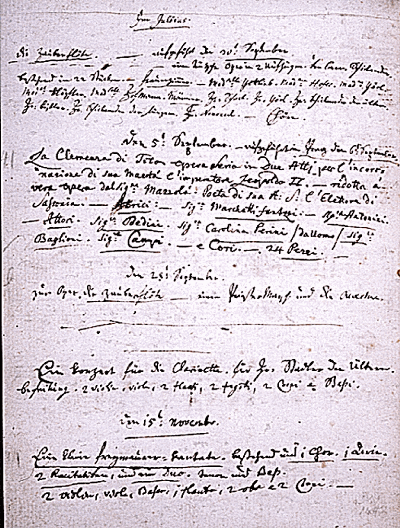 Im Jullius.
Die Zauberflöte — aufgeführt den 30.t September.
eine teutsche Oper in 2 Aufzügen. von Eman. Schikaneder.
bestehend in 22 Stücken. — Frauenzimmer. — Mad.selle Gottlieb. Mad.me Hofer. Mad.me Görl.
Mad.me Klöpfler. Mad.selle Hofmann. Männer. Hr. Schack. Hr. Görl. Hr. Schikaneder der ältere.
Hr. Kistler. Hr. Schikaneder der Jüngere. Hr. Nouseul. — Chöre.
Den 5.t September. — aufgeführt in Prag den 6.t September.
La Clemenza di Tito. opera seria in Due Atti. per l'incoro-
nazione di sua maestà l'imperatore Leopoldo II. — ridotta a
vera opera dal Sig.re Mazzolà. Poeta di sua A: S: l'Elettore di
Sassonia. — Attrici: — Sig.ra Marchetti fantozi. — Sig.ra Antonini.
— Attori. Sig.re Bedini. Sig.ra Carolina Perini /da uomo/ Sig.re
Baglioni. Sig.re Campi. — e Cori. — 24 Pezzi. —
Den 28.t September.
zur Oper, die Zauberflöte — einen Priester Marsch und die Ouverture.
Ein Konzert für die Clarinette. für Hr. Stadler den ältern.
begleitung. 2 violin, viole, 2 flauti, 2 fagotti, 2 Corni e Bassi.
Den 15.t Novembr.
Eine kleine freymaurer-kantate. bestehend aus 1 Chor. 1 Arie.
2 Recitativen, und ein Duo. tenor und Bass.
2 violin, viola, Basso, 1 flauto, 2 oboe e 2 Corni. —